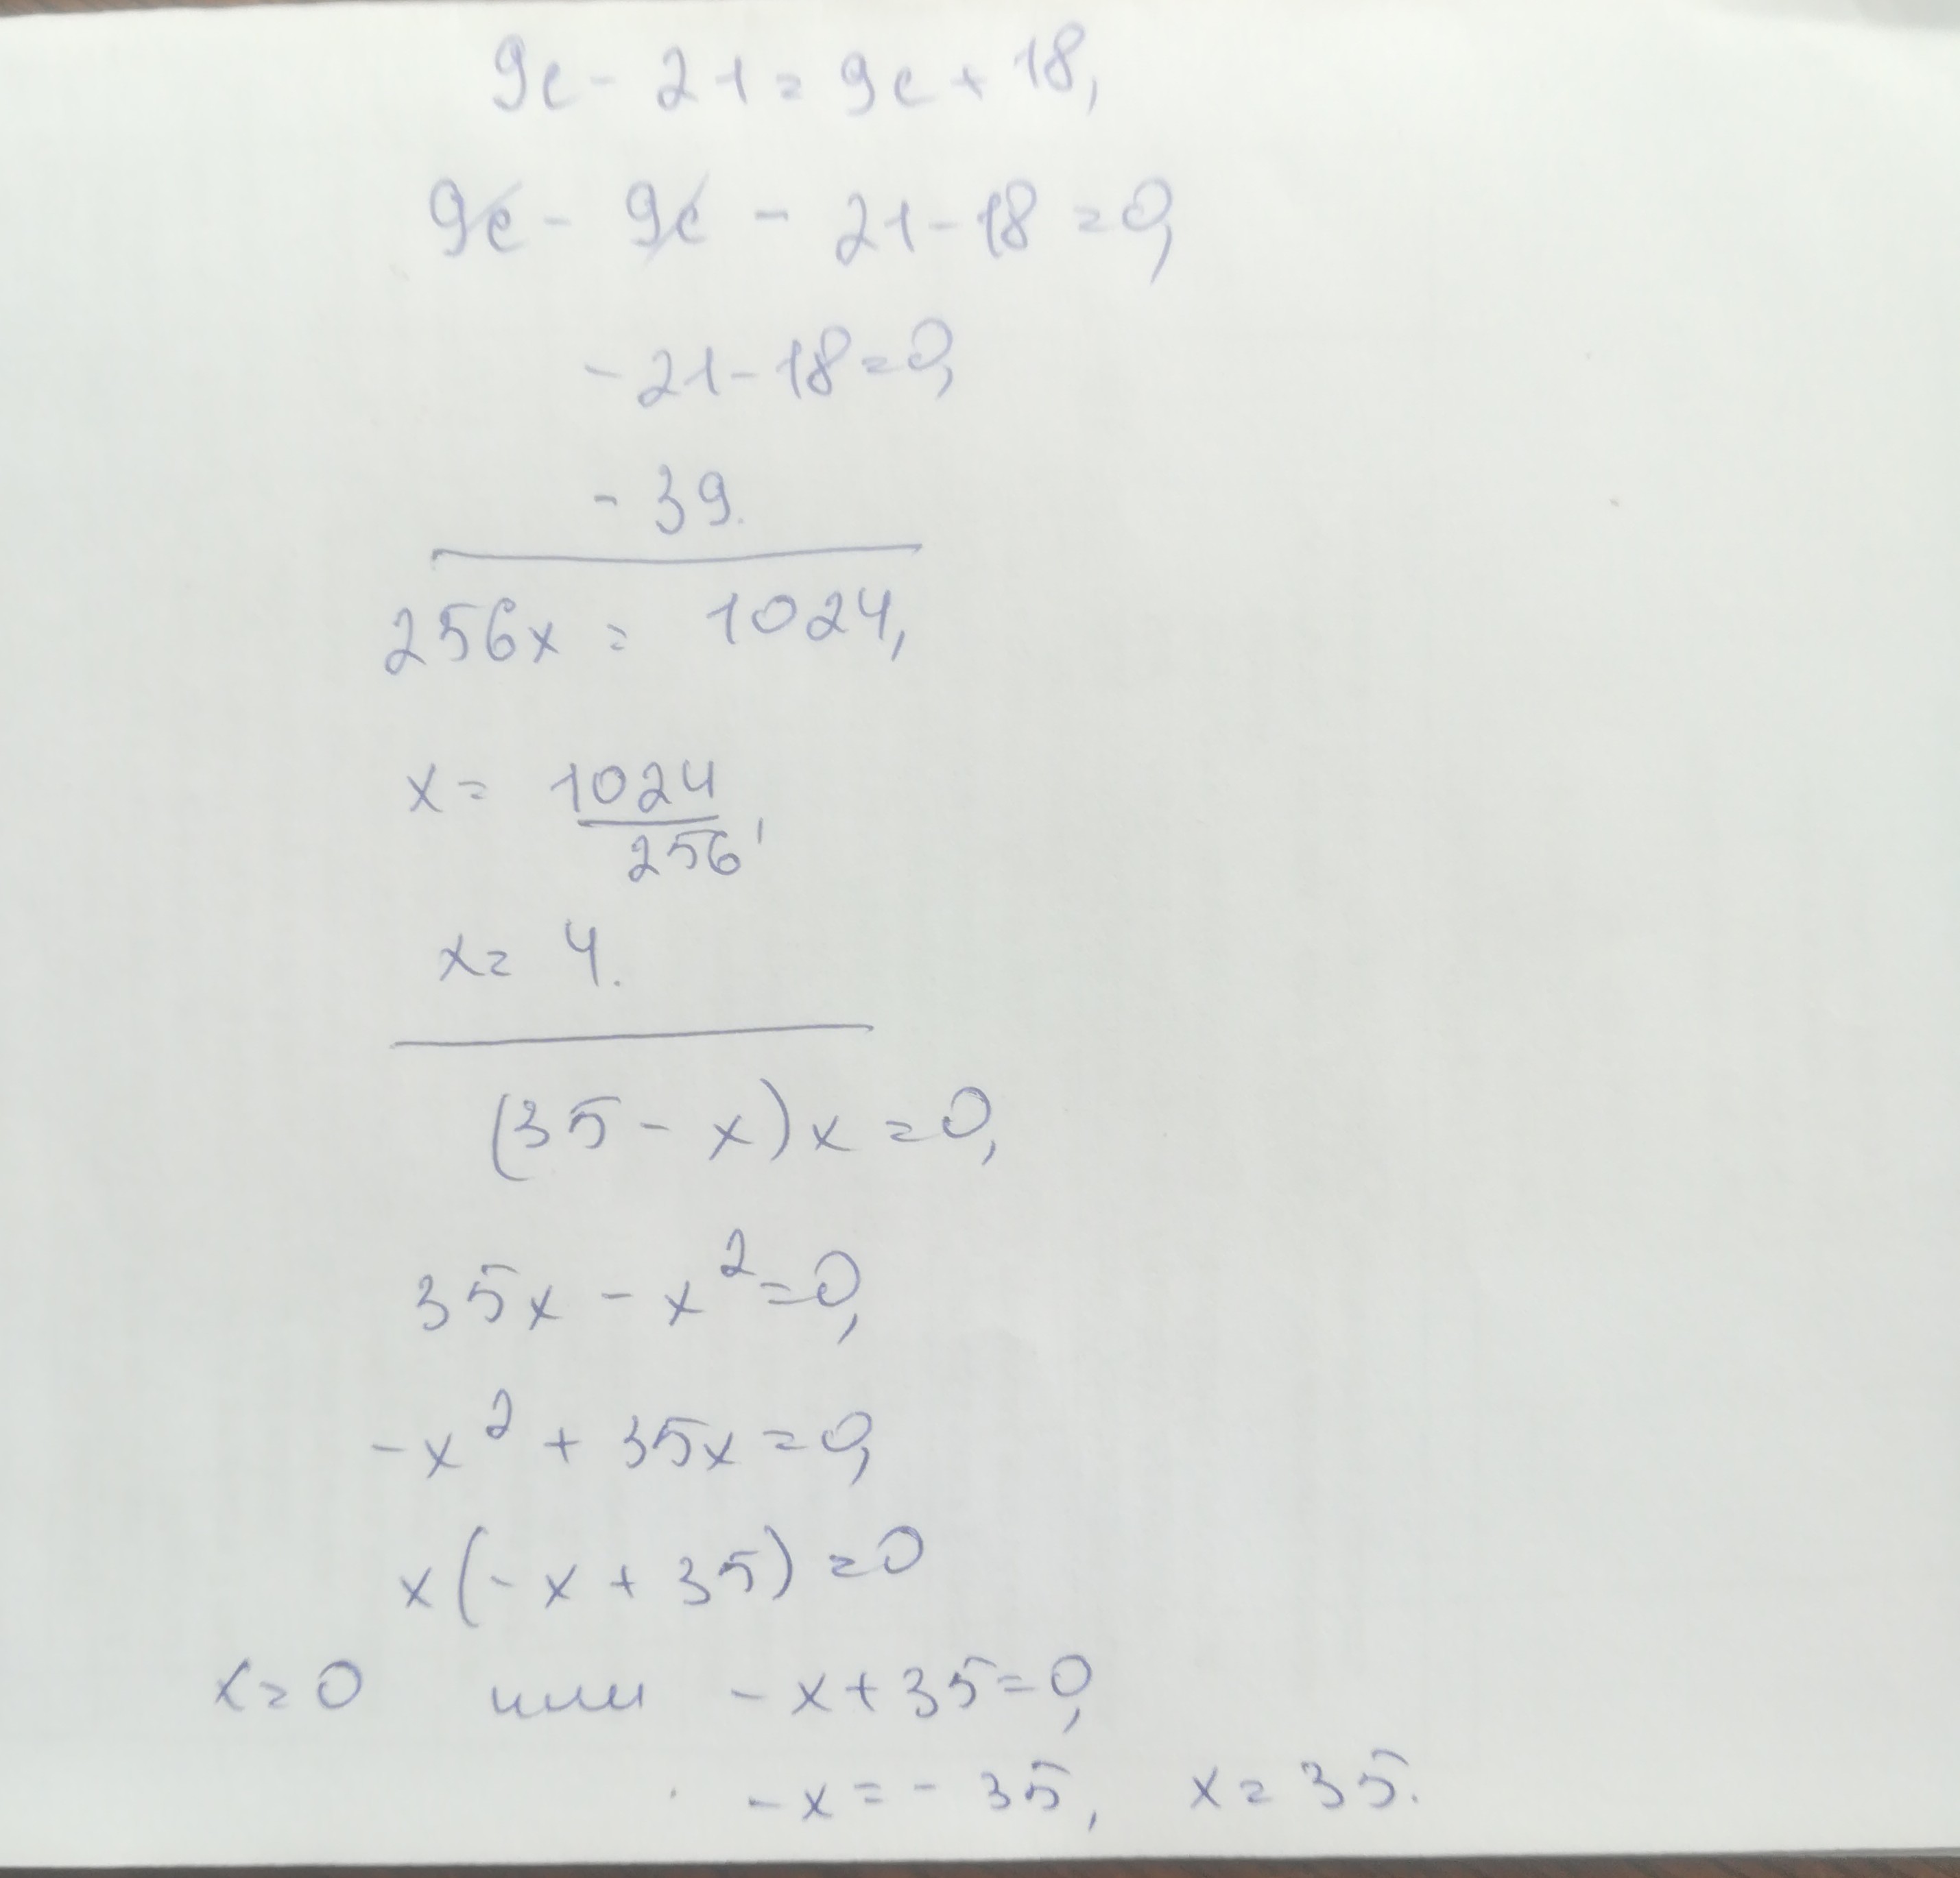 9c - 21 = 9c + 18,
9c - 9c - 21 - 18 = 0,
- 21 - 18 = 0,
- 39.
256x = 1024,
x = 1024/256,
x = 4.
(35 - x)x = 0,
35x - x² = 0,
-x² + 35x = 0,
x(-x + 35) = 0
x = 0 или -x + 35 = 0,
-x = - 35, x = 35.